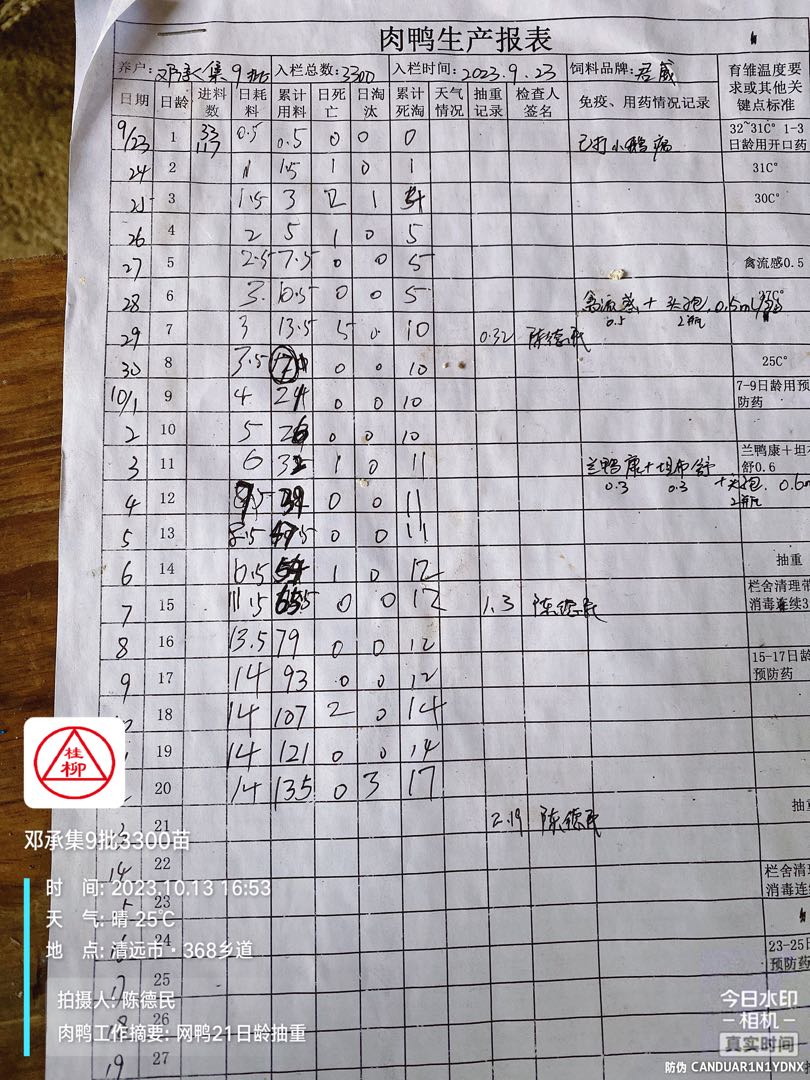 肉鸭生产报表
养户: 邓承集9批 入栏总数: 3300 入栏时间: 2023.9.23 饲料品牌: 君威 育雏温度要求或其他关键点标准
日期 日龄 进料数 日耗料 累计用料 日死亡 日淘汰 累计死淘 天气情况 抽重记录 检查人签名 免疫、用药情况记录
9/23 1 33 117 0.5 0.5 0 0 0 已打小鹅病 32~31C° 1-3日龄用开口药
24 2 1 1.5 1 0 1 31C°
25 3 1.5 3 2 1 4 30C°
26 4 2 5 1 0 5
27 5 2.5 7.5 0 0 5 禽流感0.5
28 6 3 10.5 0 0 5 禽流感+头孢 0.5ml 0.5 2瓶 27C°
29 7 3 13.5 5 0 10 0.32 陈德民
30 8 3.5 17 0 0 10 25C°
10/1 9 4 21 0 0 10 7-9日龄用预防药
2 10 5 26 0 0 10
3 11 6 32 1 0 11 兰鸭康+坦布舒 0.3 0.3 兰鸭康+坦布舒0.6
4 12 39 0 0 11 +头孢 2瓶
5 13 8.5 0 0 11
6 14 1 0 12 抽重
7 15 11.5 65.5 0 0 12 1.3 陈德民 栏舍清理带 消毒连续3
8 16 13.5 79 0 0 12
9 17 14 93 0 0 12 15-17日龄 预防药
18 14 107 2 0 14
19 14 121 0 0 14
20 14 135 0 3 17
21 2.19 陈德民 抽重
14 22 栏舍清理 消毒连续
23
24 23-25日 预防药
17 25
18 26
19 27
桂柳
邓承集9批3300苗
时 间: 2023.10.13 16:53
天 气: 晴 25℃
地 点: 清远市·368乡道
拍摄人: 陈德民
肉鸭工作摘要: 网鸭21日龄抽重
今日水印
-相机-
真实时间
防伪 CANDUAR1N1YDNX